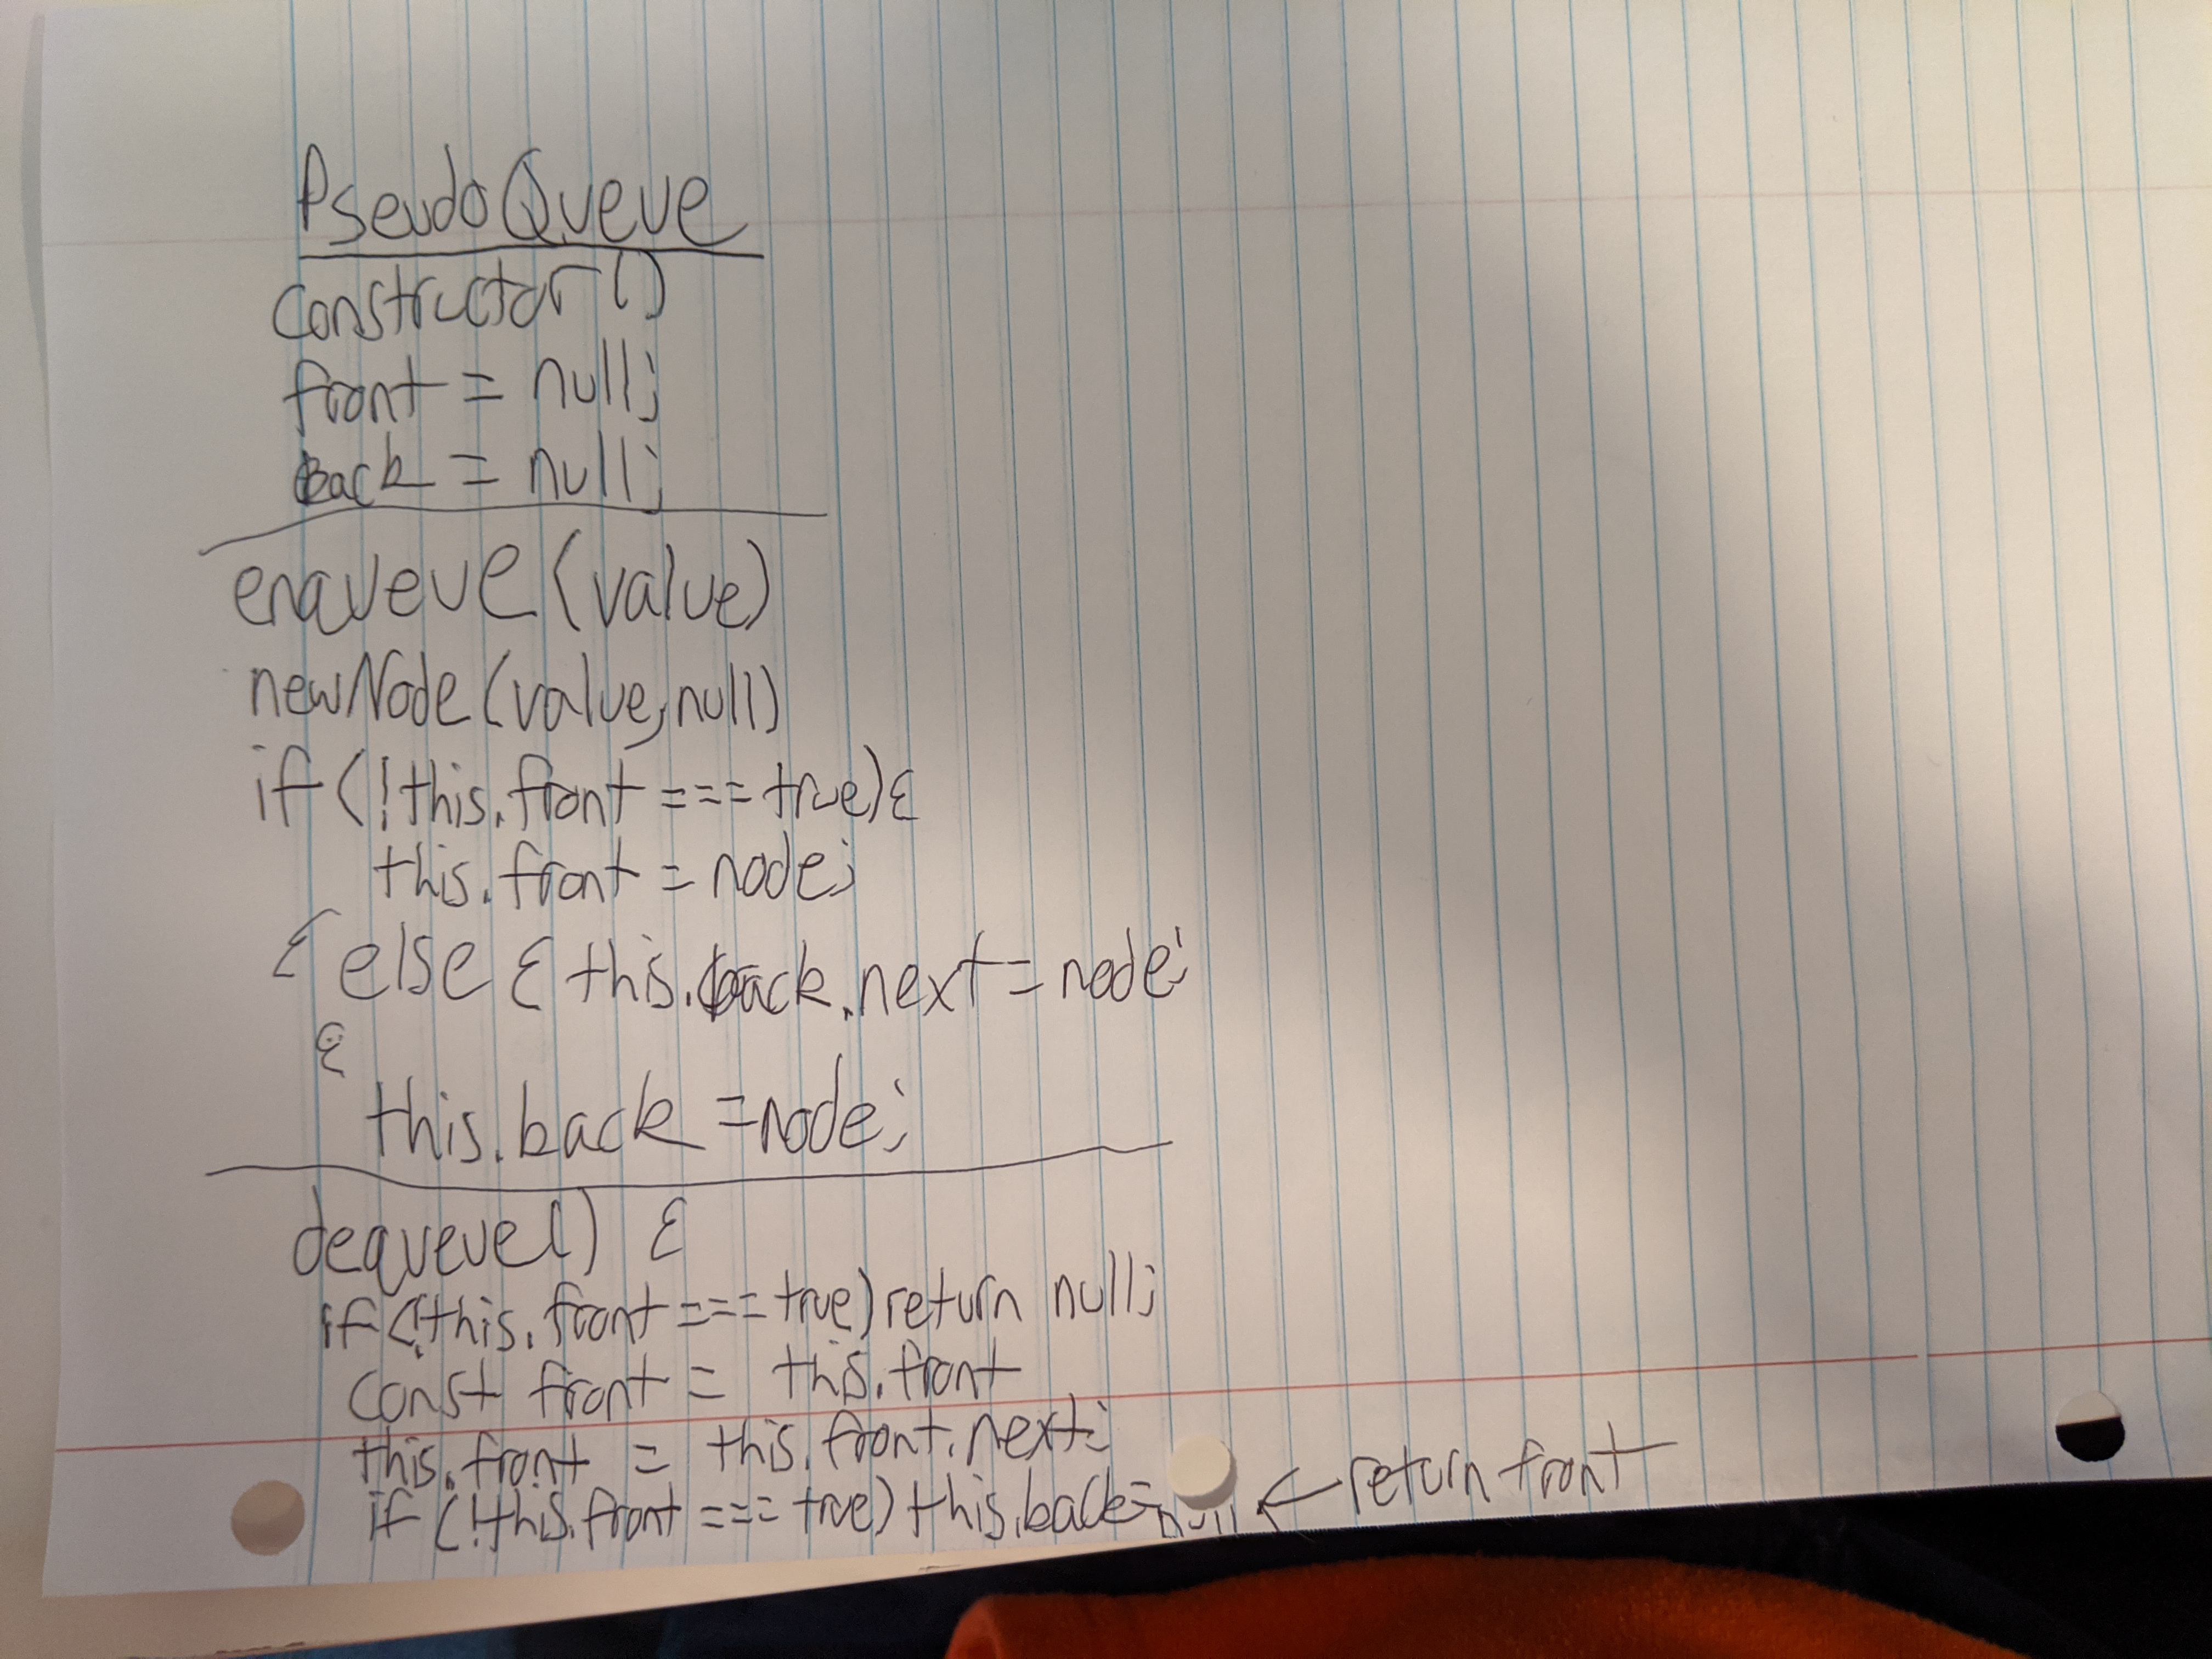 PseudoQueue
constructor()
front = null;
back = null;
enqueue (value)
newNode(value,null)
if (!this.front === true){
this.front = node;
} else { this.back.next = node;
}
this.back = node;
dequeue() {
if (!this.front === true) return null;
const front = this.front
this.front = this.front.next;
if (!this.front === true) this.back = null ← return front